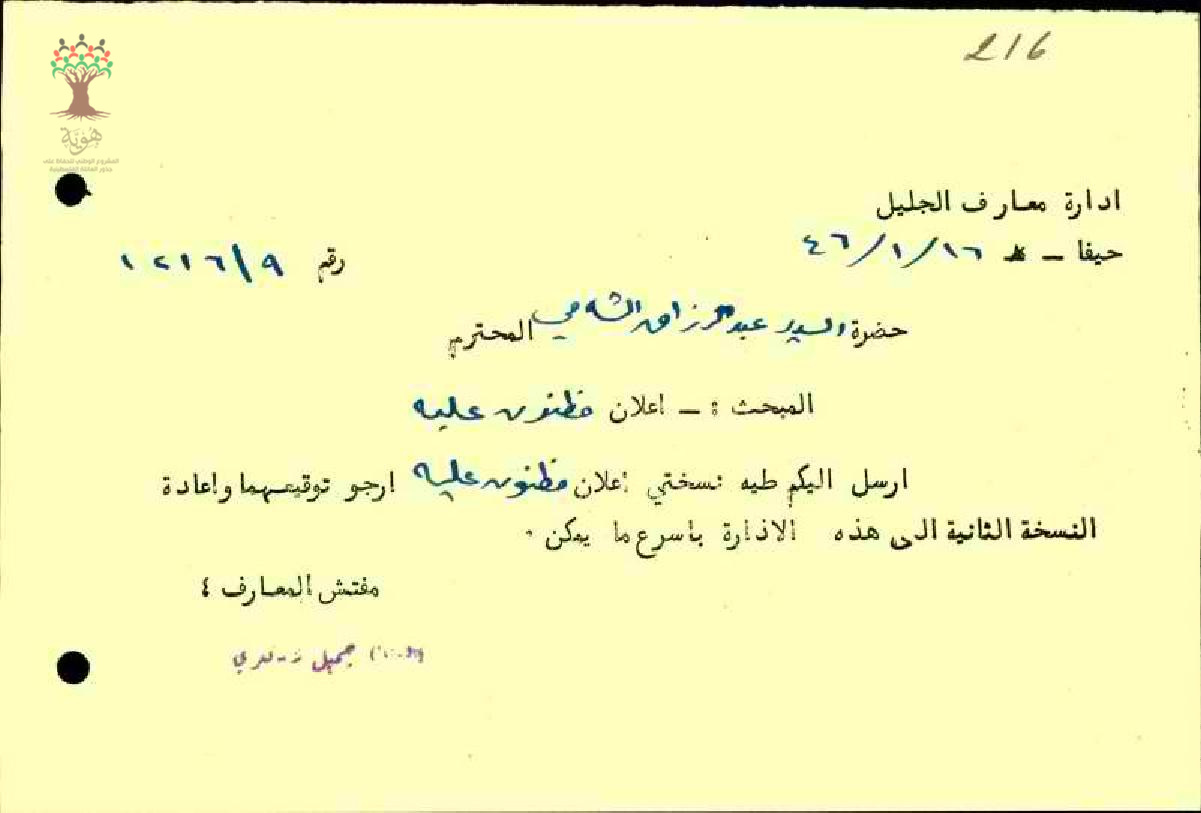 216
هوية
المشروع الوطني للحفاظ على
جذور العائلة الفلسطينية
ادارة معارف الجليل
حيفا – ١٦/١/٤٦
رقم ١٢١٦/٩
حضرة السيد عبد الرزاق الشامي المحترم
المبحث : – اعلان مظنون عليه
ارسل اليكم طيه نسختي اعلان مظنون عليه ارجو توقيعهما واعادة
النسخة الثانية الى هذه الادارة باسرع ما يمكن .
مفتش المعارف ٤
جميل